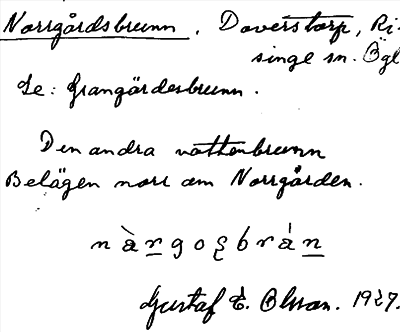 Norrgårdsbrunn. Doverstorp, Ri-
singe sn. Ögl
Se: Grangärdesbrunn.
Den andra vattenbrunn
Belägen norr om Norrgården.
nàrgoʂbrán
Gustaf E. Olsson. 1927.